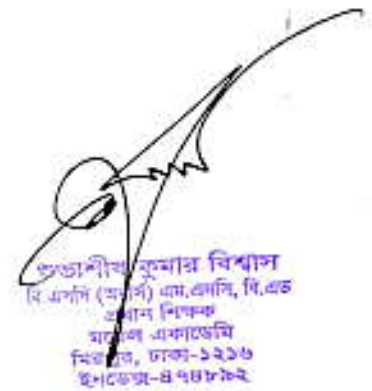 শুভাশীষ কুমার বিশ্বাস
বি.এসসি (অনার্স) এম.এসসি, বি.এড
প্রধান শিক্ষক
মডেল একাডেমি
মিরপুর, ঢাকা-১২১৬
ইনডেক্স-৪৭৪৮৯২